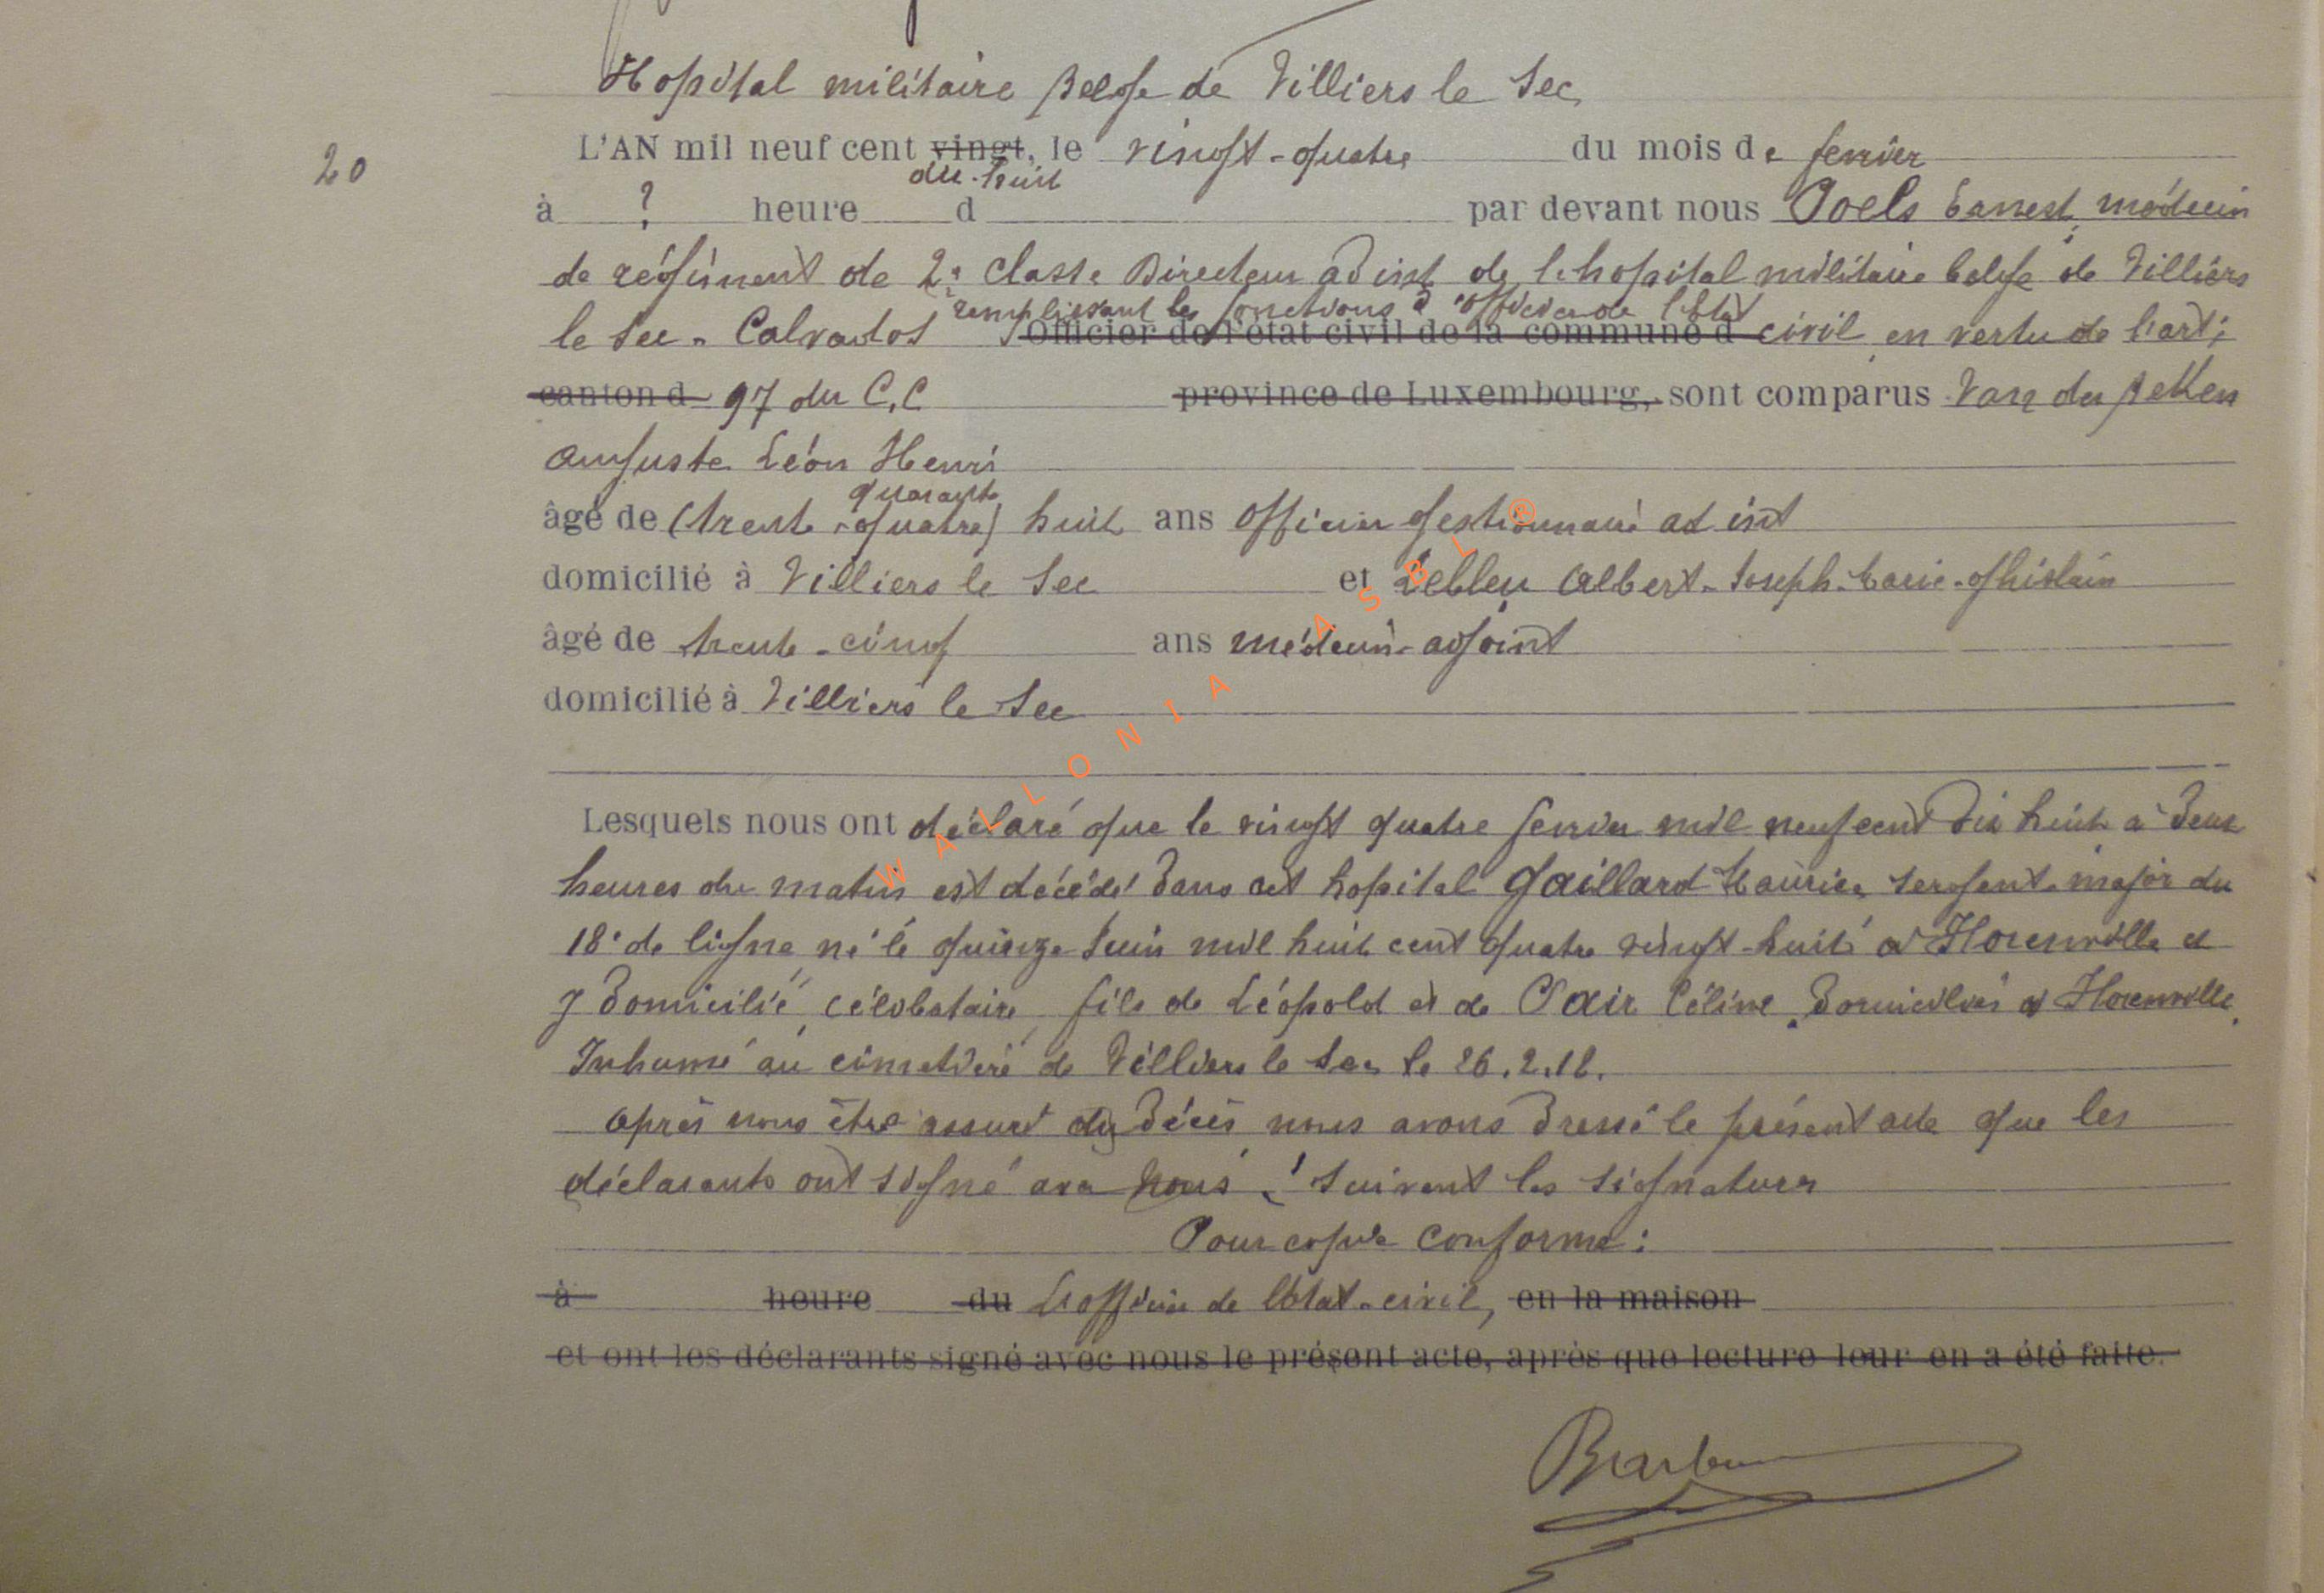 Hopital militaire Belge de Villiers le Sec
20
L'AN mil neuf cent vingt, le vingt-quatre du mois de fevrier
dix-huit
à ? heure d par devant nous Poels Ernest, médecin
de régiment de 2e classe Directeur ad int de l'hopital militaire belge de Villiers
remplissant les fonctions d'officier de l'état
le Sec - Calvados Officier de l'état civil de la commune d civil en vertu de l'art;
canton d 97 du C.C province de Luxembourg, sont comparus Van der Peken
Auguste Léon Henri
quarante
âgé de (trente-quatre) huit ans officier gestionnaire ad int
domicilié à Villiers le Sec et Lebleu Albert-Joseph-Marie-Ghislain
âgé de trente-cinq ans médecin-adjoint
domicilié à Villiers le Sec
Lesquels nous ont déclaré que le vingt quatre fevrier mil neuf cent dix huit à deux
heures du matin est décédé dans cet hopital Gaillard Maurice sergent-major du
18e de ligne né le quinze Juin mil huit cent quatre vingt-huit à Florenville et
y domicilié, célibataire, fils de Léopold et de Clair Céline, domiciliés à Florenville.
Inhumé au cimetière de Villiers le Sec le 26.2.18.
Après nous être assuré du décès nous avons dressé le présent acte que les
déclarants ont signé avec nous, Suivent les signatures
Pour copie conforme:
à heure du L'officier de l'état-civil, en la maison
et ont les déclarants signé avec nous le présent acte, après que lecture leur en a été faite.
WALLONIA ASBL ®